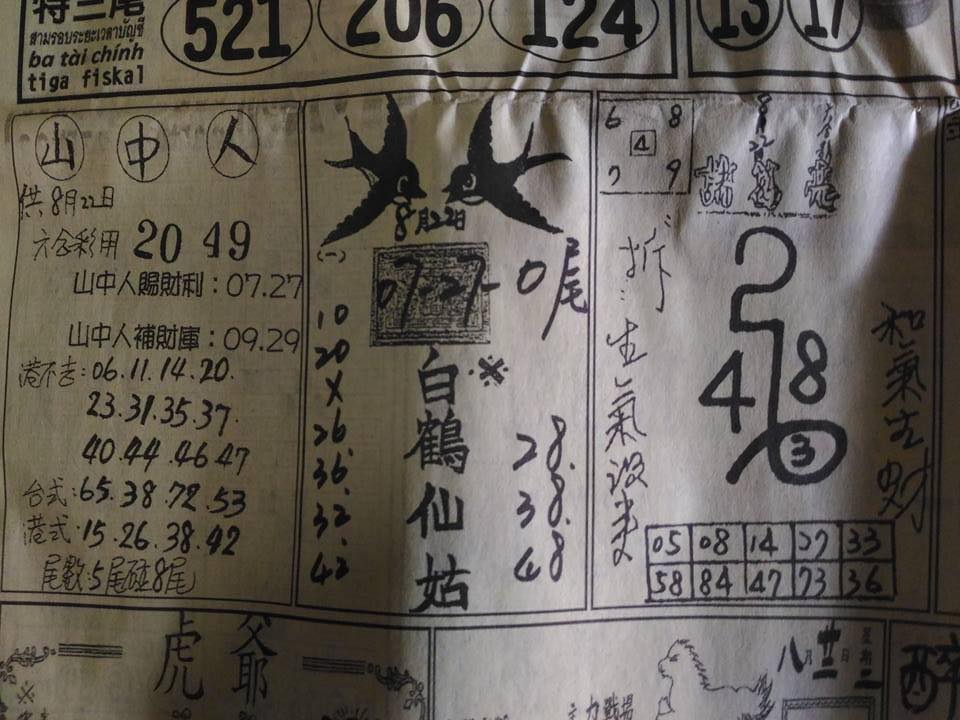 特三尾
สามรอบระยะเวลาบัญชี
ba tài chính
tiga fiskal
521 206 124
13 17
山中人
供8月22日
六合彩用 20 49
山中人賜財利：07.27
山中人補財庫：09.29
港不去:06.11.14.20.
23.31.35.37.
40.44.46.47
台式:65.38.72.53
港式:15.26.38.42
尾數:5尾碰8尾
8月22日
(一)
07-27-0尾
10
20
X
26.
36.
32.
42
白鶴仙姑
※
28.
38.
48
6 8
4
7 9
8月22日
六合彩
2
4 8
3
生氣沒
和氣生財
05 08 14 27 33
58 84 47 73 36
虎爺
※
主力戰場
八月廿二日
星期二
醉